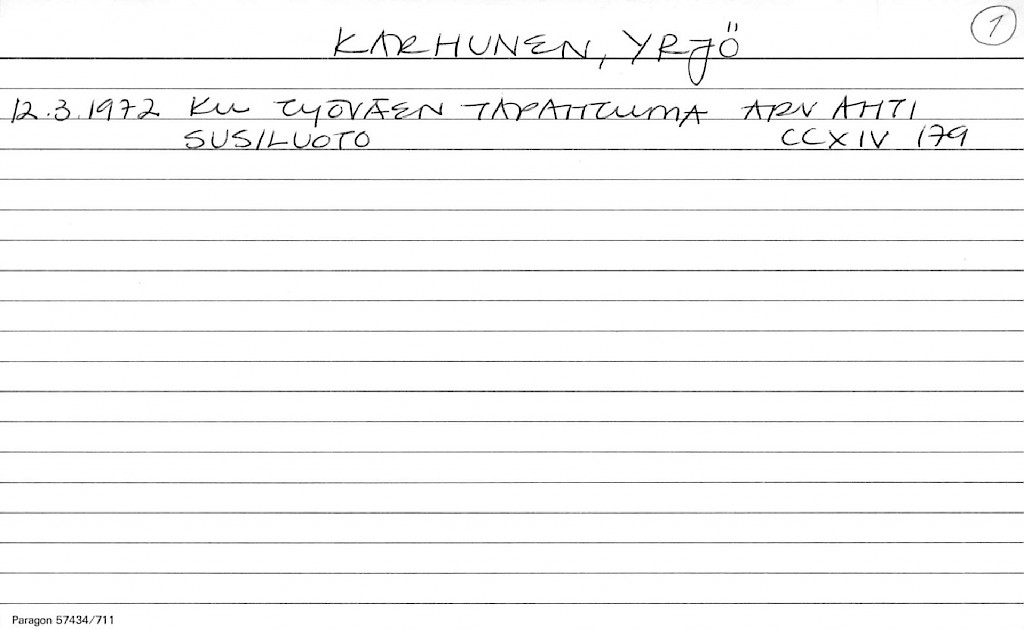 KARHUNEN, YRJÖ
1
12.3.1972 KU TYÖVÄEN TAPAHTUMA ARV AHTI
SUSILUOTO CCXIV 179
Paragon 57434/711